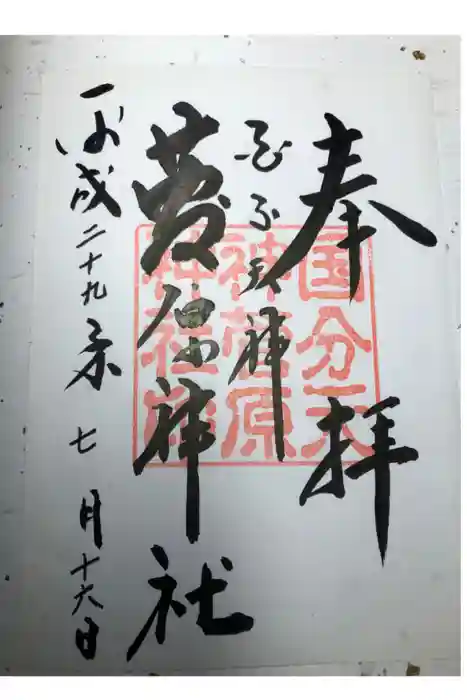 奉拝
天神
菅原神社
平成二十九年七月十六日
国分天
神菅原
神社